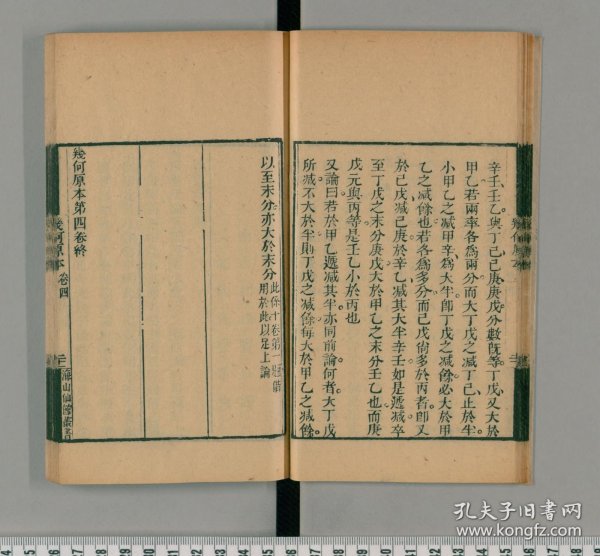 辛壬壬乙與丁己己庚庚戊分數旣等丁戊又大於
甲乙若兩率各爲兩分而大丁戊之减丁己止於半
小甲乙之减甲辛爲大半卽丁戊之减餘必大於甲
乙之减餘也若各爲多分而己戊尙多於丙者卽又
於己戊减己庚於辛乙减其大半辛壬如是遞减卒
至丁戊之末分庚戊大於甲乙之末分壬乙也而庚
戊元與丙等是壬乙小於丙也
又論曰若於甲乙遞减其半亦同前論何者大丁戊
所减不大於半則丁戊之减餘每大於甲乙之减餘
以至末分亦大於末分
此係十卷第一題借
用於此以足上論
幾何原本第四卷終
幾何原本 卷四
海山仙館叢書
孔夫子旧书网
www.kongfz.com